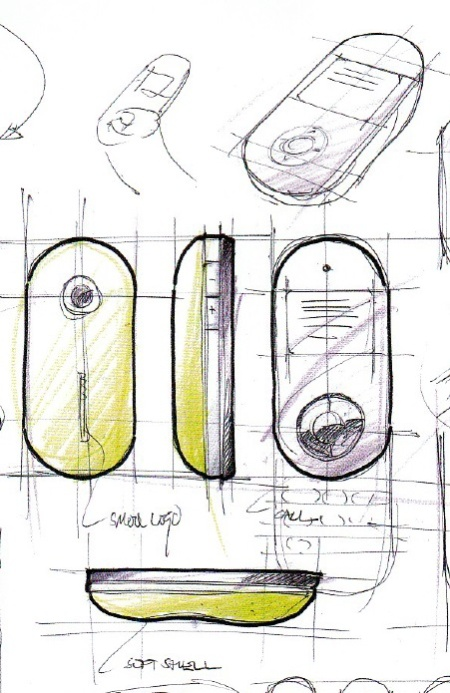 SMALL LOGO
CALL
SOFT SHELL